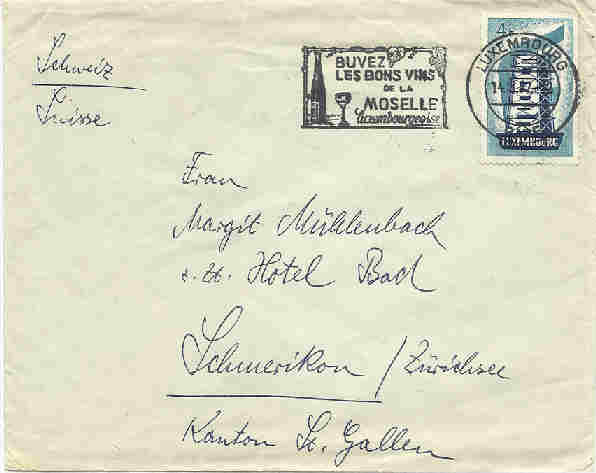 Schweiz
Suisse
BUVEZ
LES BONS VINS
DE LA
MOSELLE
luxembourgeoise
LUXEMBOURG
14
4F
LUXEMBURG
Frau
Margit Mühlenbach
z. Zt. Hotel Bad
Schmerikon / Zürichsee
Kanton St. Gallen